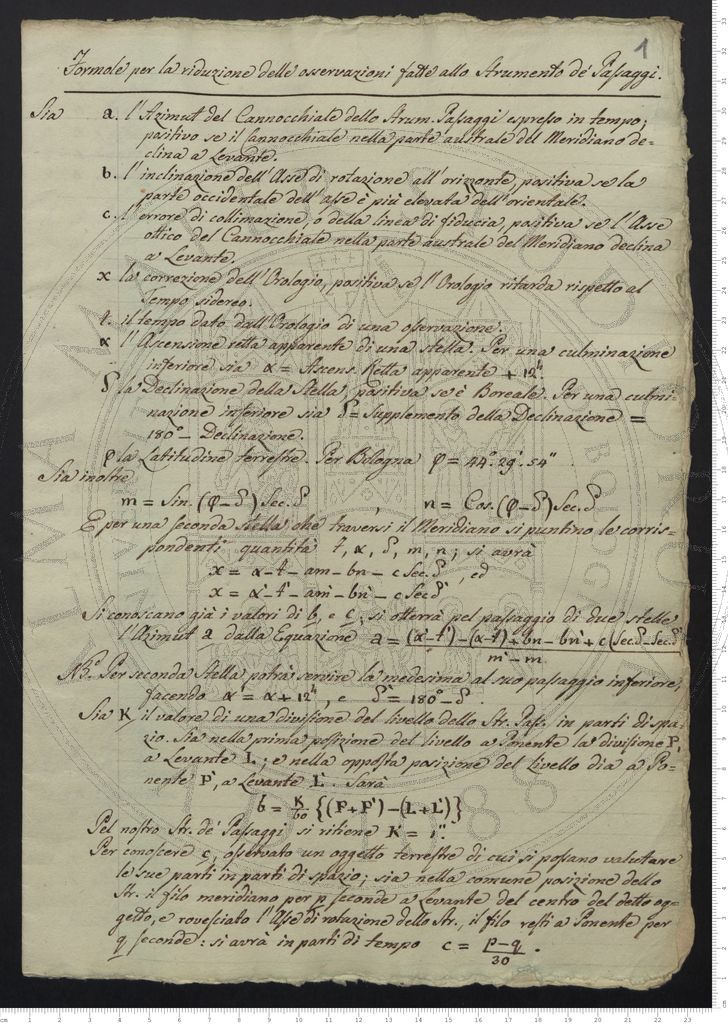 1
Formole per la riduzione delle osservazioni fatte allo Strumento de' Passaggi.
Sia a. l'Azimut del Cannocchiale dello Strum. Passaggi espresso in tempo;
positivo se il Cannocchiale nella parte australe del Meridiano de=
clina a Levante.
b. l'inclinazione dell'Asse di rotazione all'orizzonte, positiva se la
parte occidentale dell'asse è più elevata dell'orientale.
c. l'errore di collimazione o della linea di fiducia, positiva se l'Asse
ottico del Cannocchiale nella parte australe del Meridiano declina
a Levante.
x la correzione dell'Orologio, positiva se l'Orologio ritarda rispetto al
Tempo sidereo.
t. il tempo dato dall'Orologio di una osservazione.
α l'Ascensione retta apparente di una stella. Per una culminazione
inferiore sia α = Ascens. Retta apparente + 12h
δ la Declinazione della Stella, positiva se è Boreale. Per una culmi=
nazione inferiore sia δ = Supplemento della Declinazione =
180° - Declinazione.
φ la Latitudine terrestre. Per Bologna φ = 44°. 29'. 54"
Sia inoltre
m = Sin. (φ-δ) Sec. δ , n = Cos. (φ-δ) Sec. δ
E per una seconda Stella che traversi il Meridiano si puntino le corris=
pondenti quantità t, α, δ, m, n; si avrà
x = α - t - am - bn - c Sec. δ , ed
x = α' - t' - am' - bn' - c Sec. δ'
Si conoscano già i valori di b, e c, si otterrà pel passaggio di due stelle
l'Azimut a dalla Equazione a = (α'-t') - (α-t) + bn - bn' + c (Sec. δ - Sec. δ')
m' - m
NB.° Per seconda Stella potrà servire la medesima al suo passaggio inferiore,
facendo α' = α + 12h, e δ' = 180° - δ.
Sia K il valore di una divisione del livello dello Str. Pass. in parti di spa=
zio. Sia nella prima posizione del livello a Ponente la divisione P,
a Levante L; e nella opposta posizione del livello dia a Po=
nente P', a Levante L'. Sarà
b = K/60 {(P+P') - (L+L')}
Pel nostro Str. de' Passaggi si ritiene K = 1".
Per conoscere c, osservato un oggetto terrestre di cui si possano valutare
le sue parti in parti di spazio; sia nella comune posizione dello
Str. il filo meridiano per p seconde a Levante del centro del detto og=
getto, e rovesciato l'Asse di rotazione dello Str., il filo resti a Ponente per
q seconde: si avrà in parti di tempo c = p-q
30 .